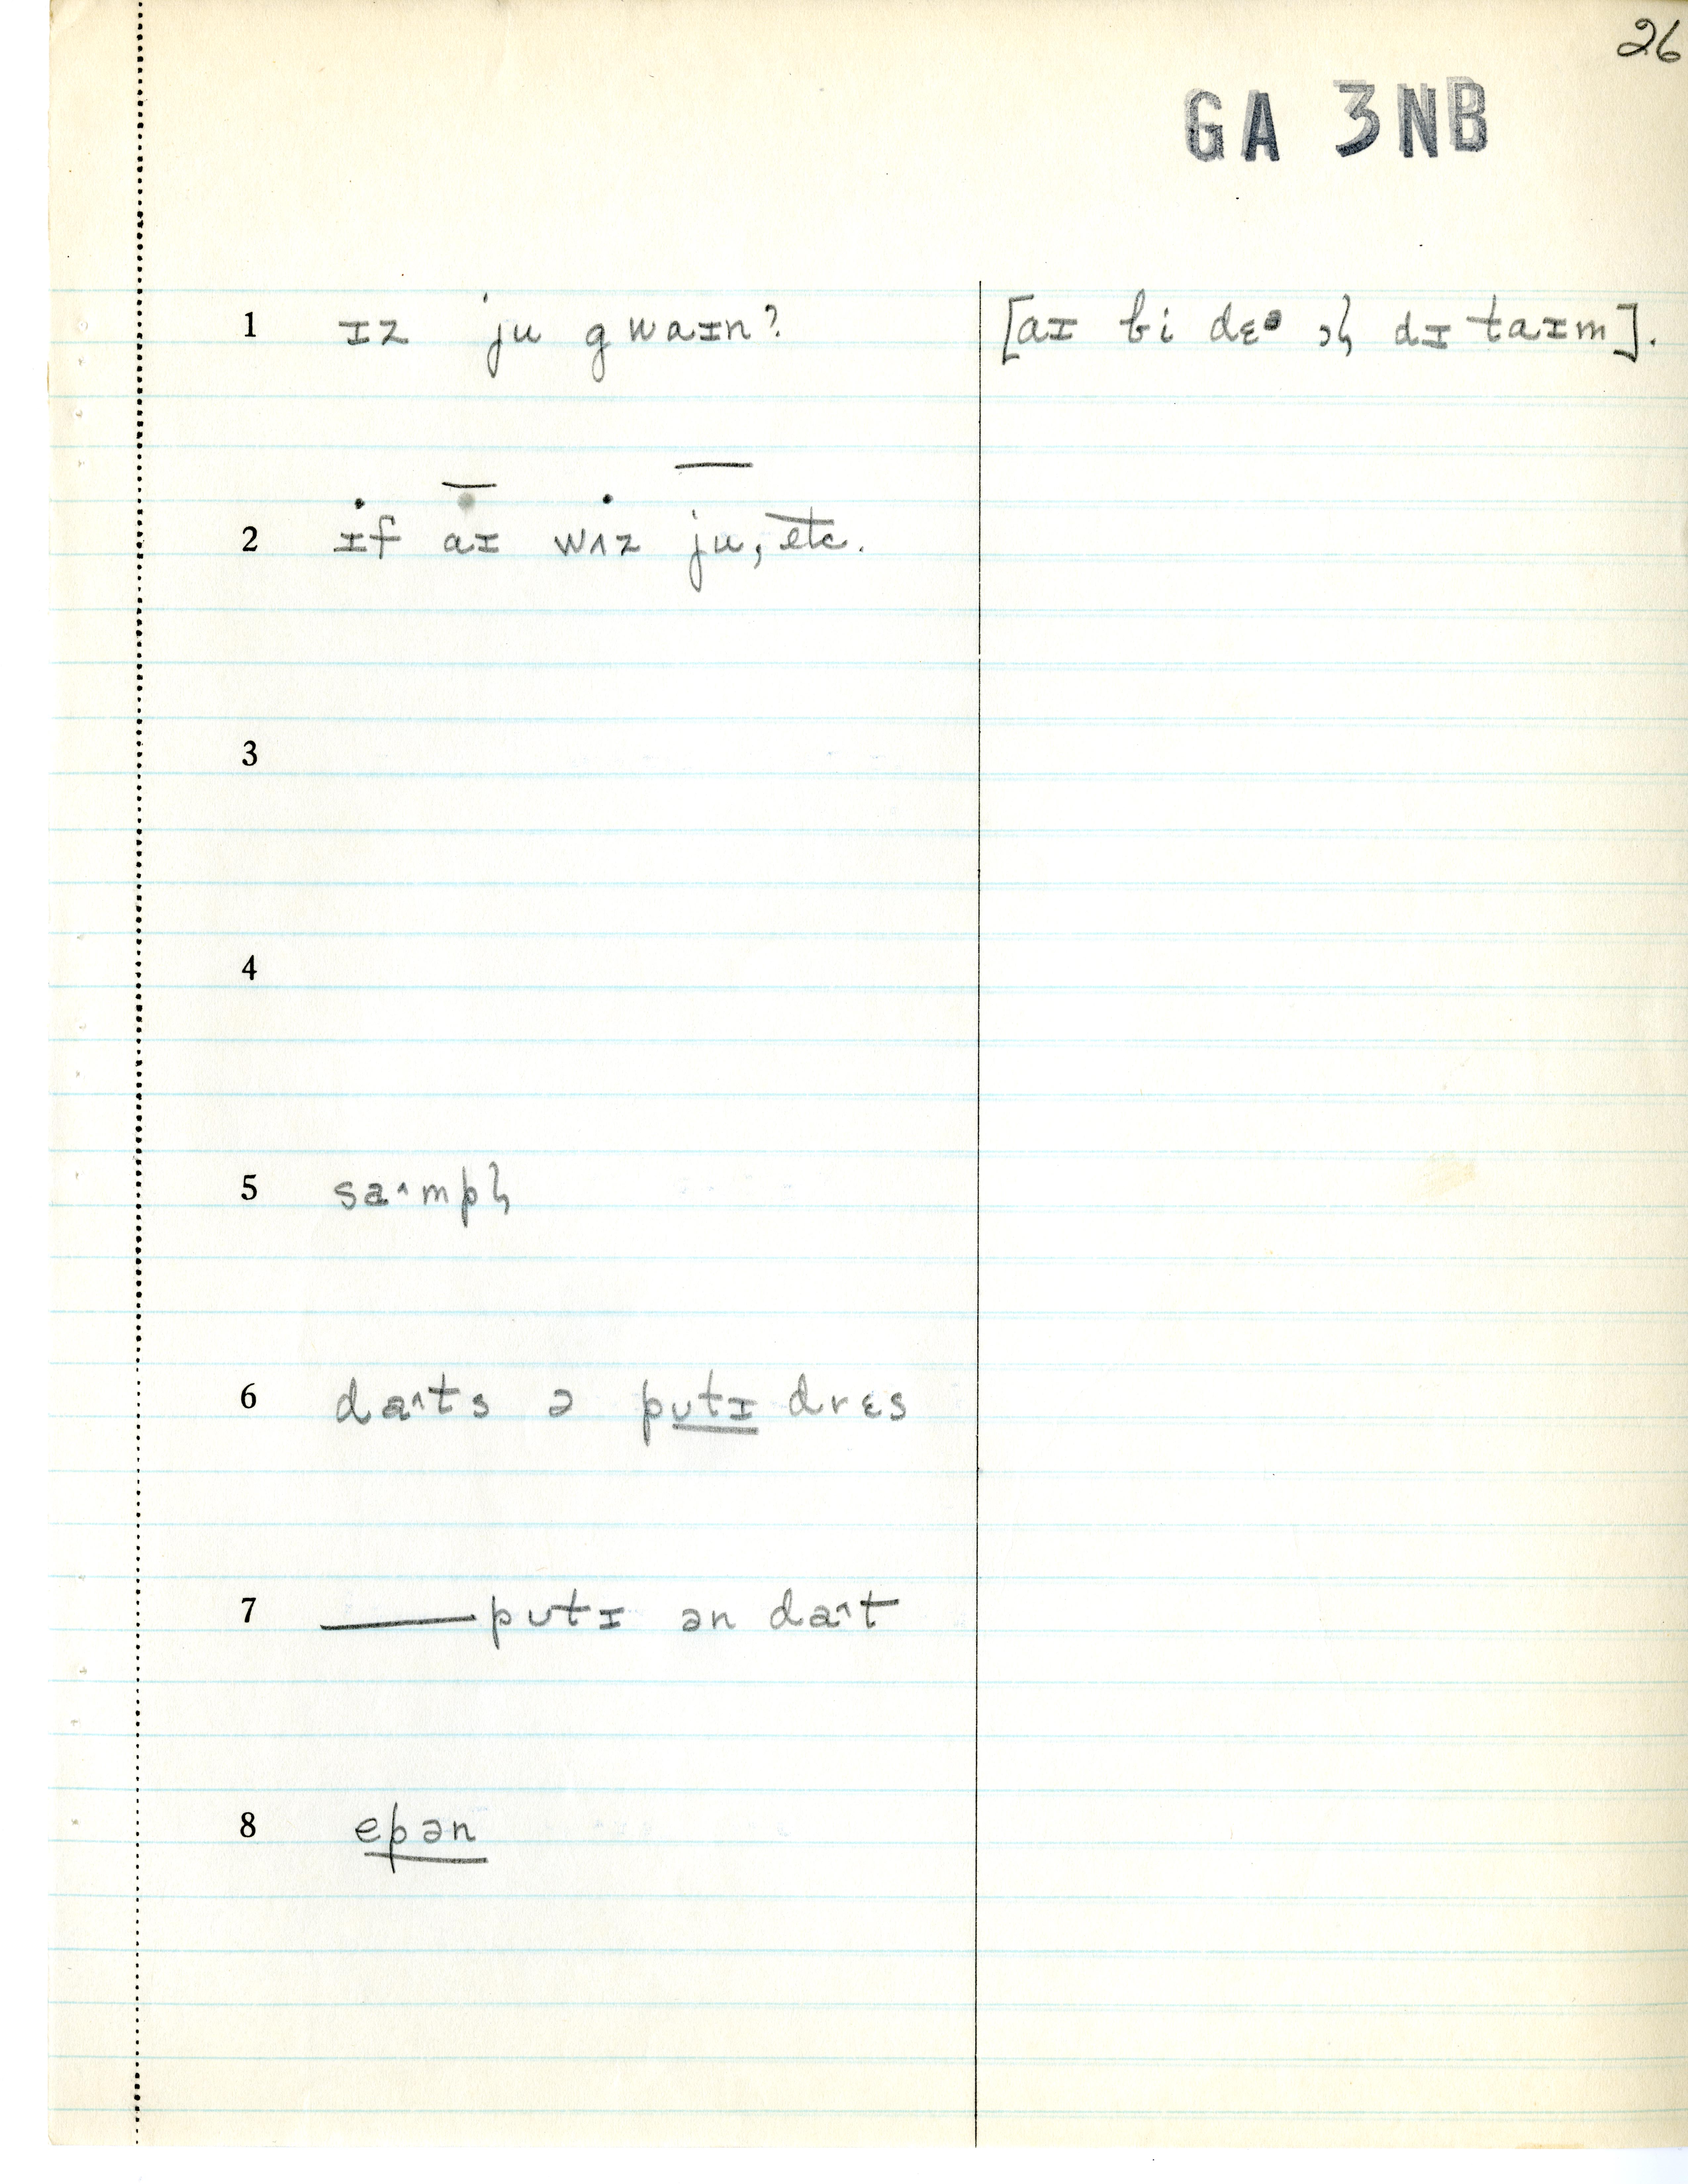 26
GA 3NB
1 ɪz ju gwaɪn? [aɪ bi dɛᵊ ɔɫ dɪ taɪm].
2 ɪf aɪ wʌz ju, etc.
3
4
5 sa˄mpɫ
6 da˄ts ə pʊtɪ drɛs
7 —— pʊtɪ ən da˄t
8 epən